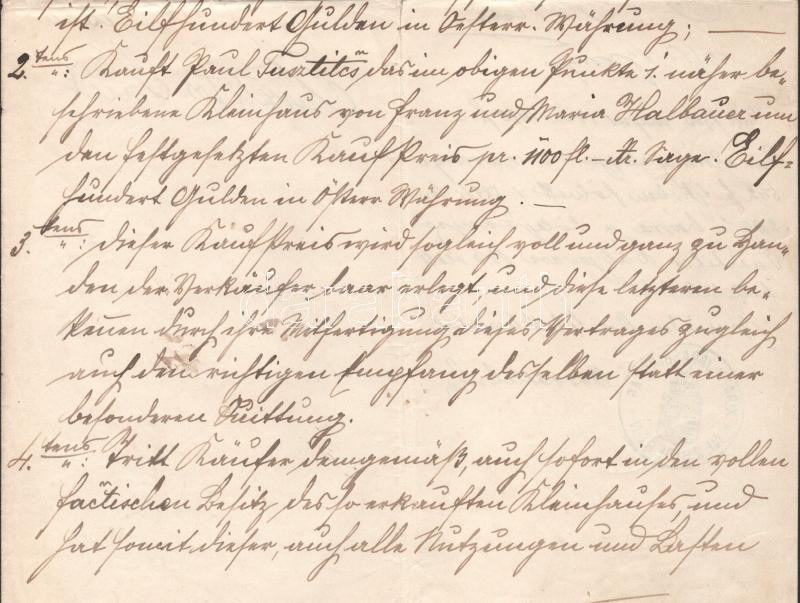 ist. Eilfhundert Gulden in Oesterr. Währung; —
2. tens ": Kauft Paul Tusztitcs das im obigen Punkte 1. näher be-
schriebene Kleinhaus von Franz und Maria Halbauer um
den festgesetzten Kauf Preis pr. 1100 fl. – Kr. Sage. Eilf-
hundert Gulden in Österr Währung. —
3. tens ": Dieser Kaufpreis wird sogleich voll und ganz zu Han-
den der Verkäufer baar erlegt, und diese letzteren be-
kennen durch ihre Mitfertigung dieses Vertrages zugleich
auch den richtigen Empfang desselben statt einer
besonderen Quittung.
4. tens ": Tritt Käufer demgemäß, auch sofort in den vollen
factischen Besitz des so erkauften Kleinhauses, und
hat somit dieser, auch alle Nutzungen und Lasten